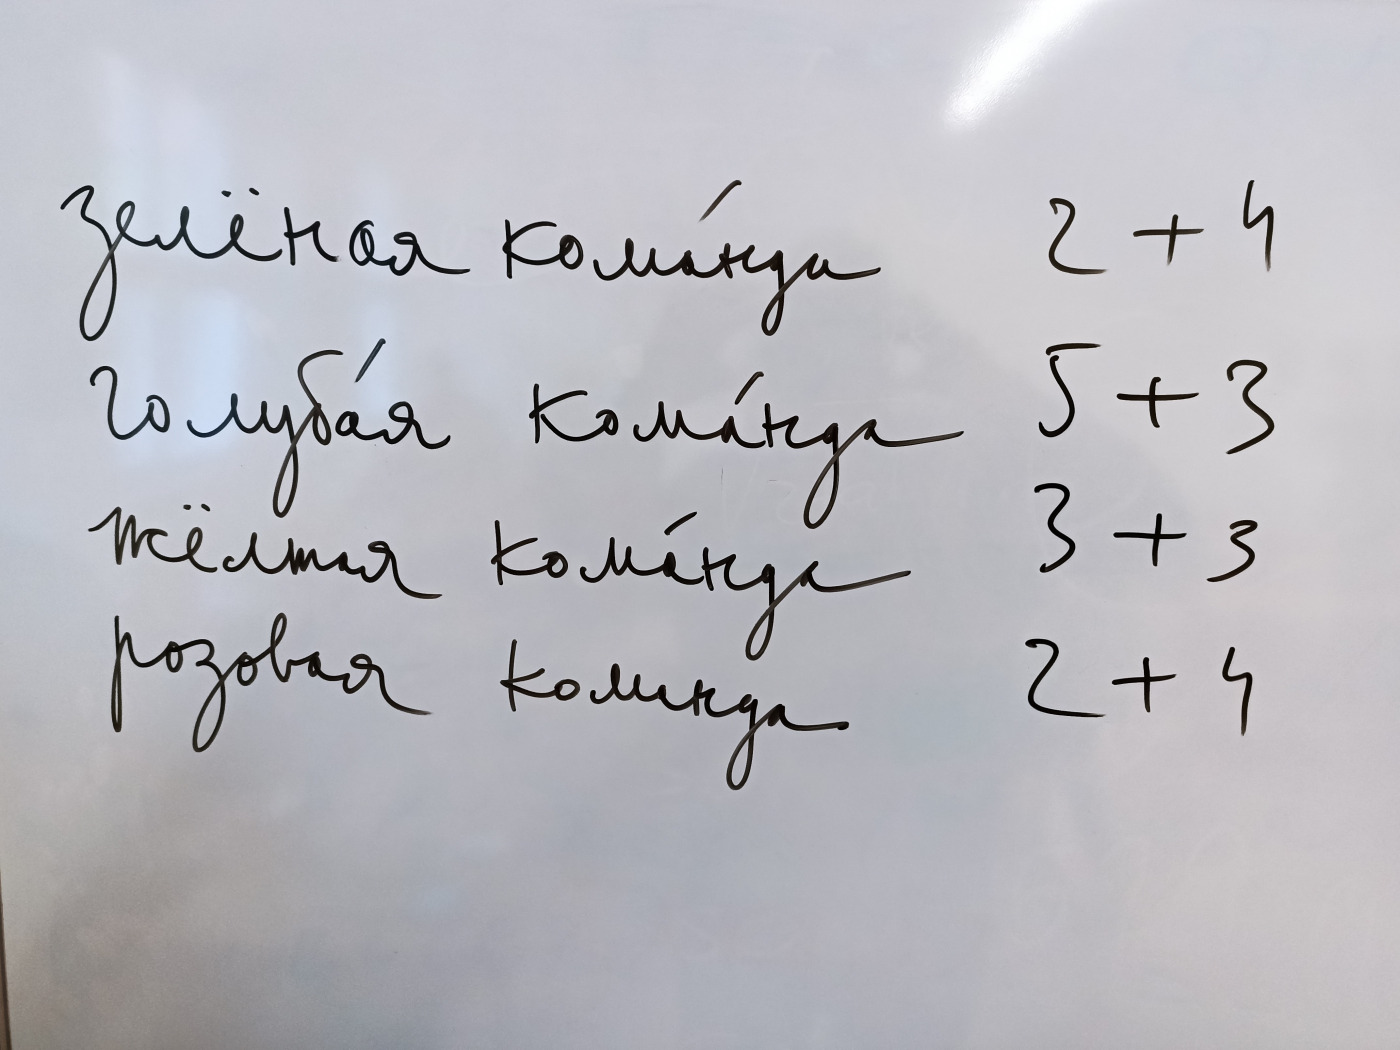 зелёная кома́нда 2 + 4
голуба́я кома́нда 5 + 3
жёлтая кома́нда 3 + 3
розовая команда 2 + 4